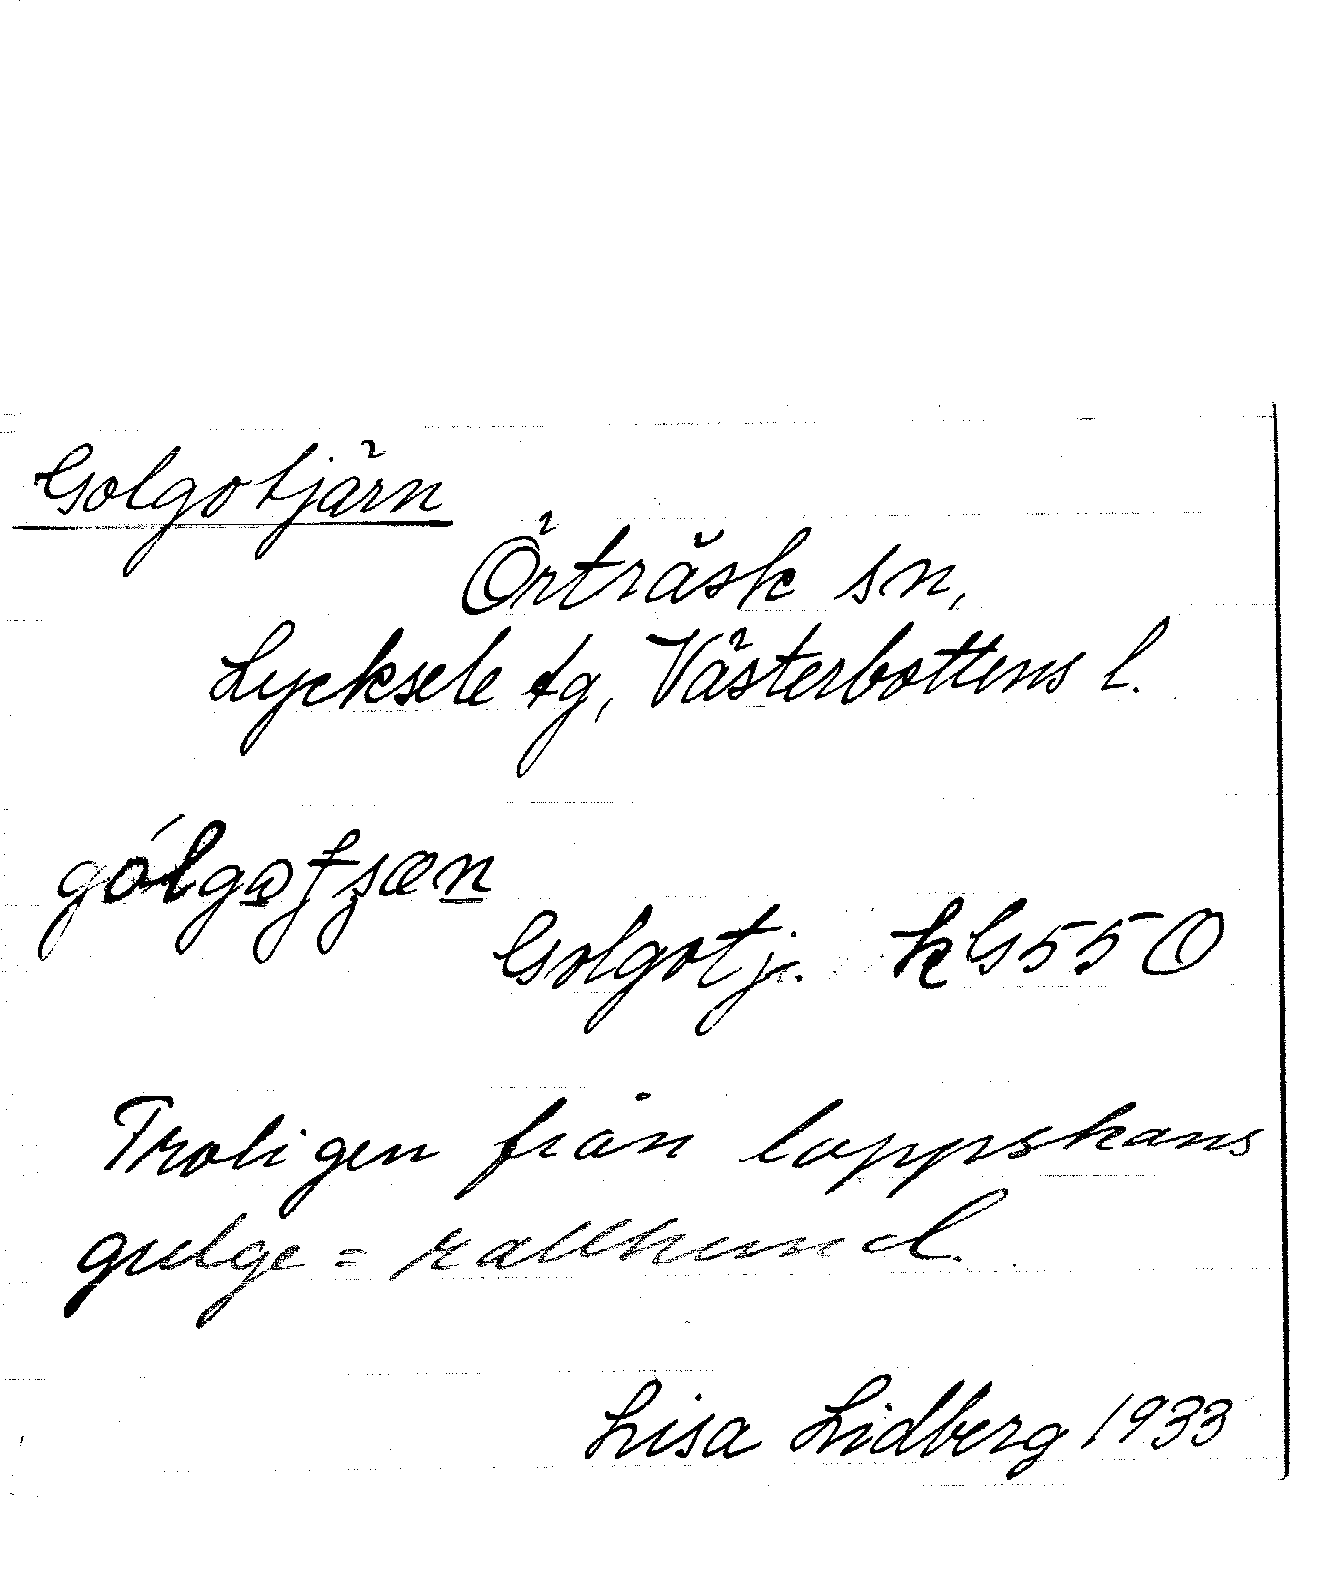 Golgotjärn
Örträsk sn,
Lycksele tg, Västerbottens l.
gólgotjæn
Golgotj. kG550
Troligen från lappskans
gulge = rallhund.
Lisa Lidberg 1933